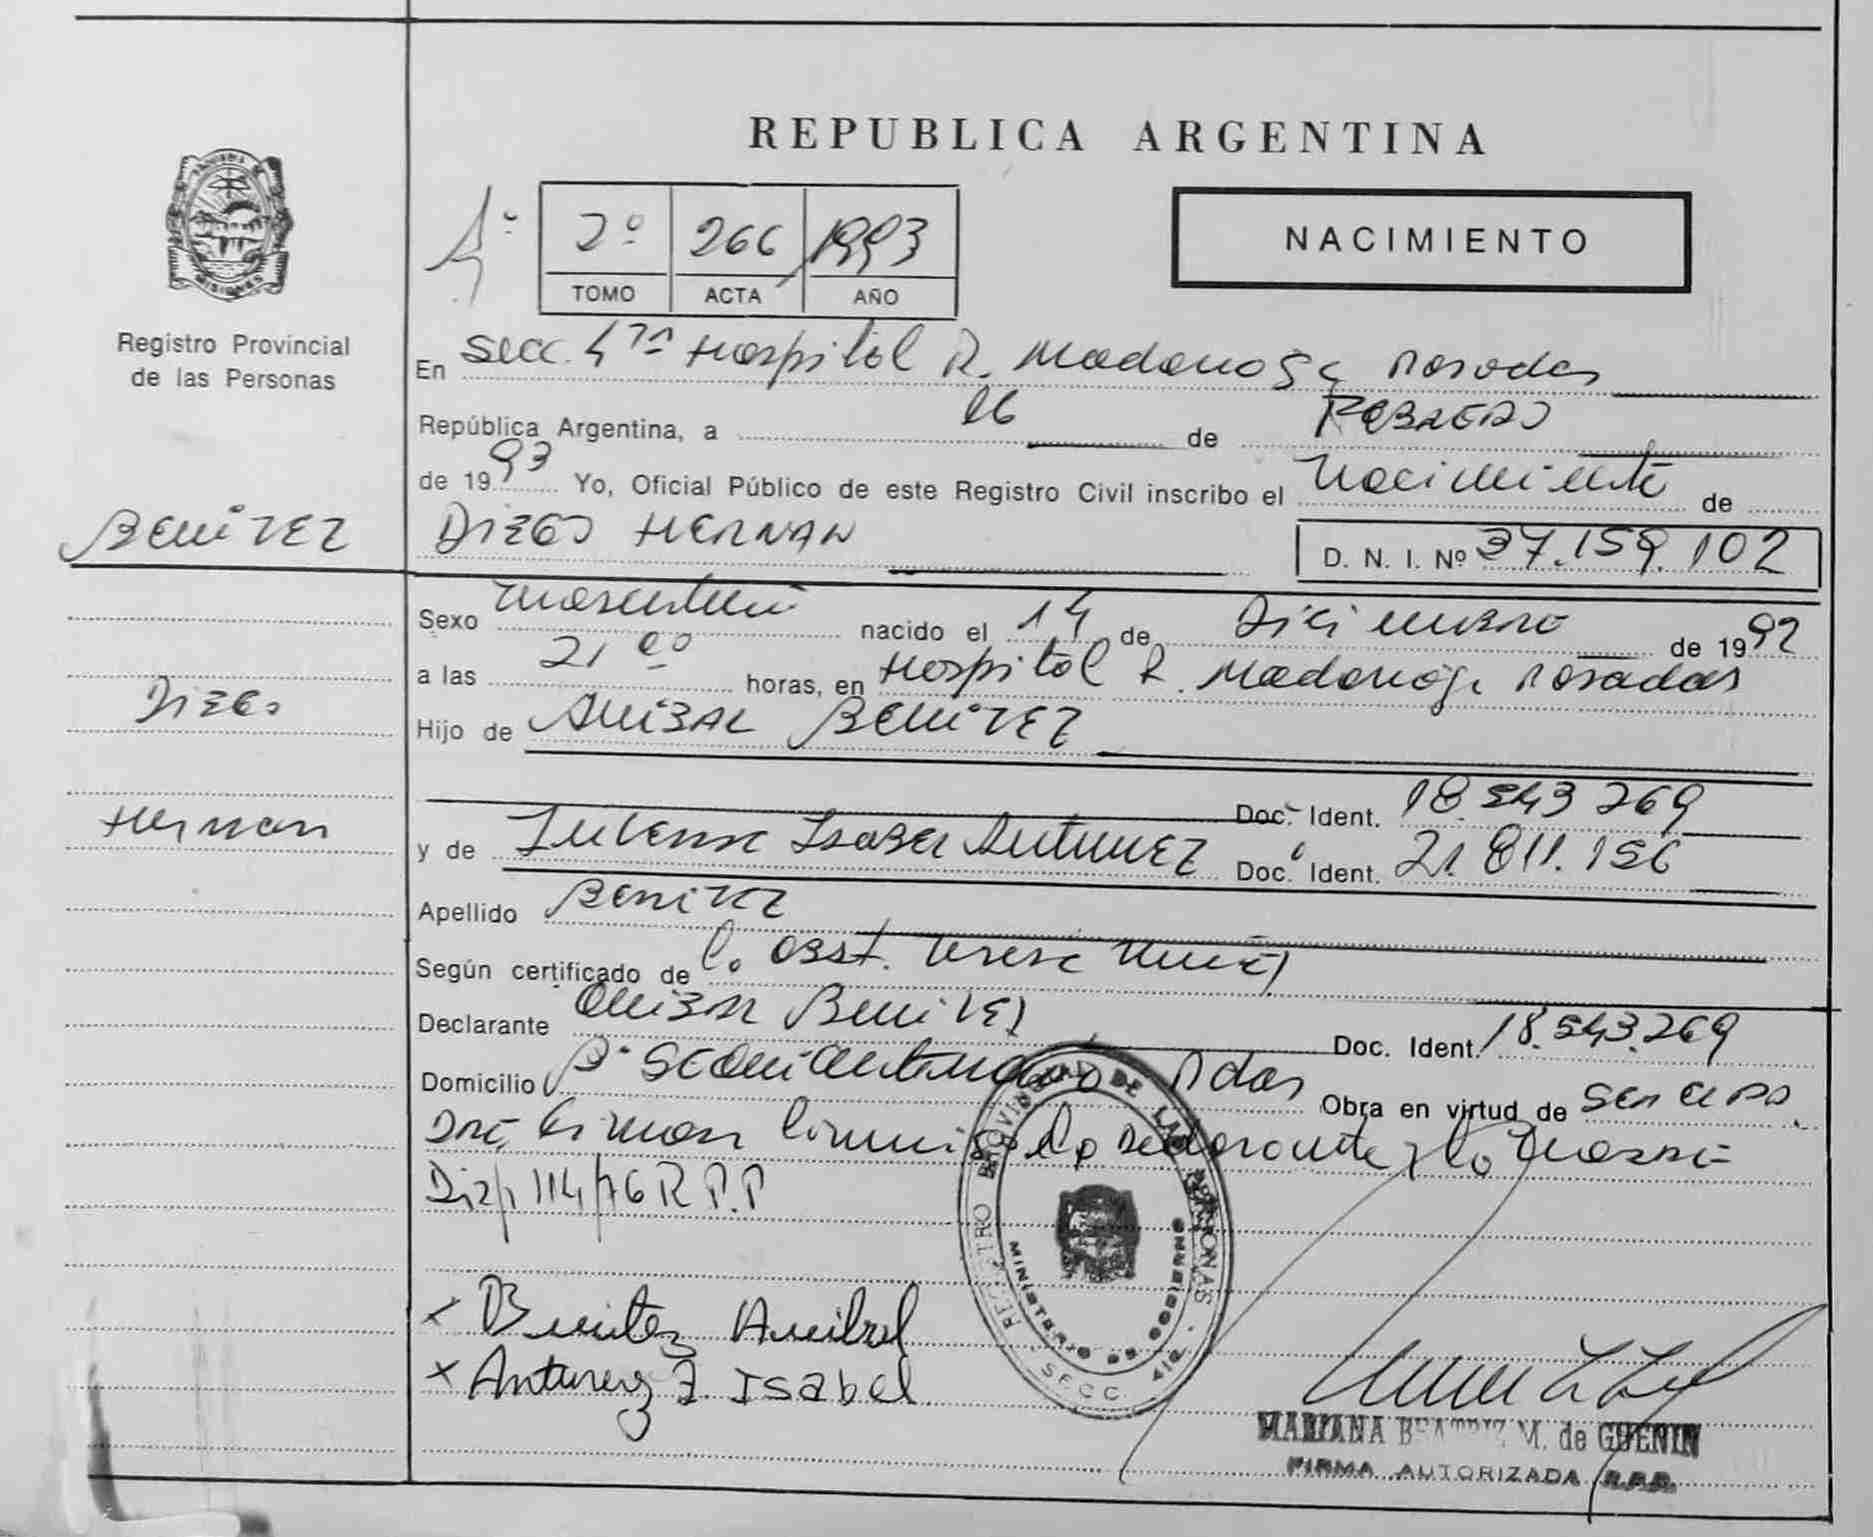 REPUBLICA ARGENTINA
MISIONES
Registro Provincial
de las Personas
2º 266 1993
TOMO ACTA AÑO
NACIMIENTO
En Secc. 4ta Hospital R. Madariaga Posadas
República Argentina, a 26 de FEBRERO
de 1993 Yo, Oficial Público de este Registro Civil inscribo el Nacimiento de
BENITEZ
DIEGO HERNAN D. N. I. Nº 37.159.102
Sexo masculino nacido el 14 de Diciembre de 1992
a las 21 00 horas, en Hospital R. Madariaga Posadas
Diego
Hijo de ANIBAL BENITEZ
Doc. Ident. 18.543.269
Hernan
y de Isabel Antunez Doc. Ident. 21.811.156
Apellido BENITEZ
Según certificado de Obst. Teresa
Declarante Anibal Benitez Doc. Ident. 18.543.269
Domicilio Pdas Obra en virtud de
declarante y la madre
Disp 114/76 R.P.P
x Benitez Anibal
x Antunez J. Isabel
REGISTRO PROVINCIAL DE LAS PERSONAS
MINISTERIO DE GOBIERNO
SECC. 4ta
MARIANA BEATRIZ M. de GUENIN
FIRMA AUTORIZADA R.P.P.